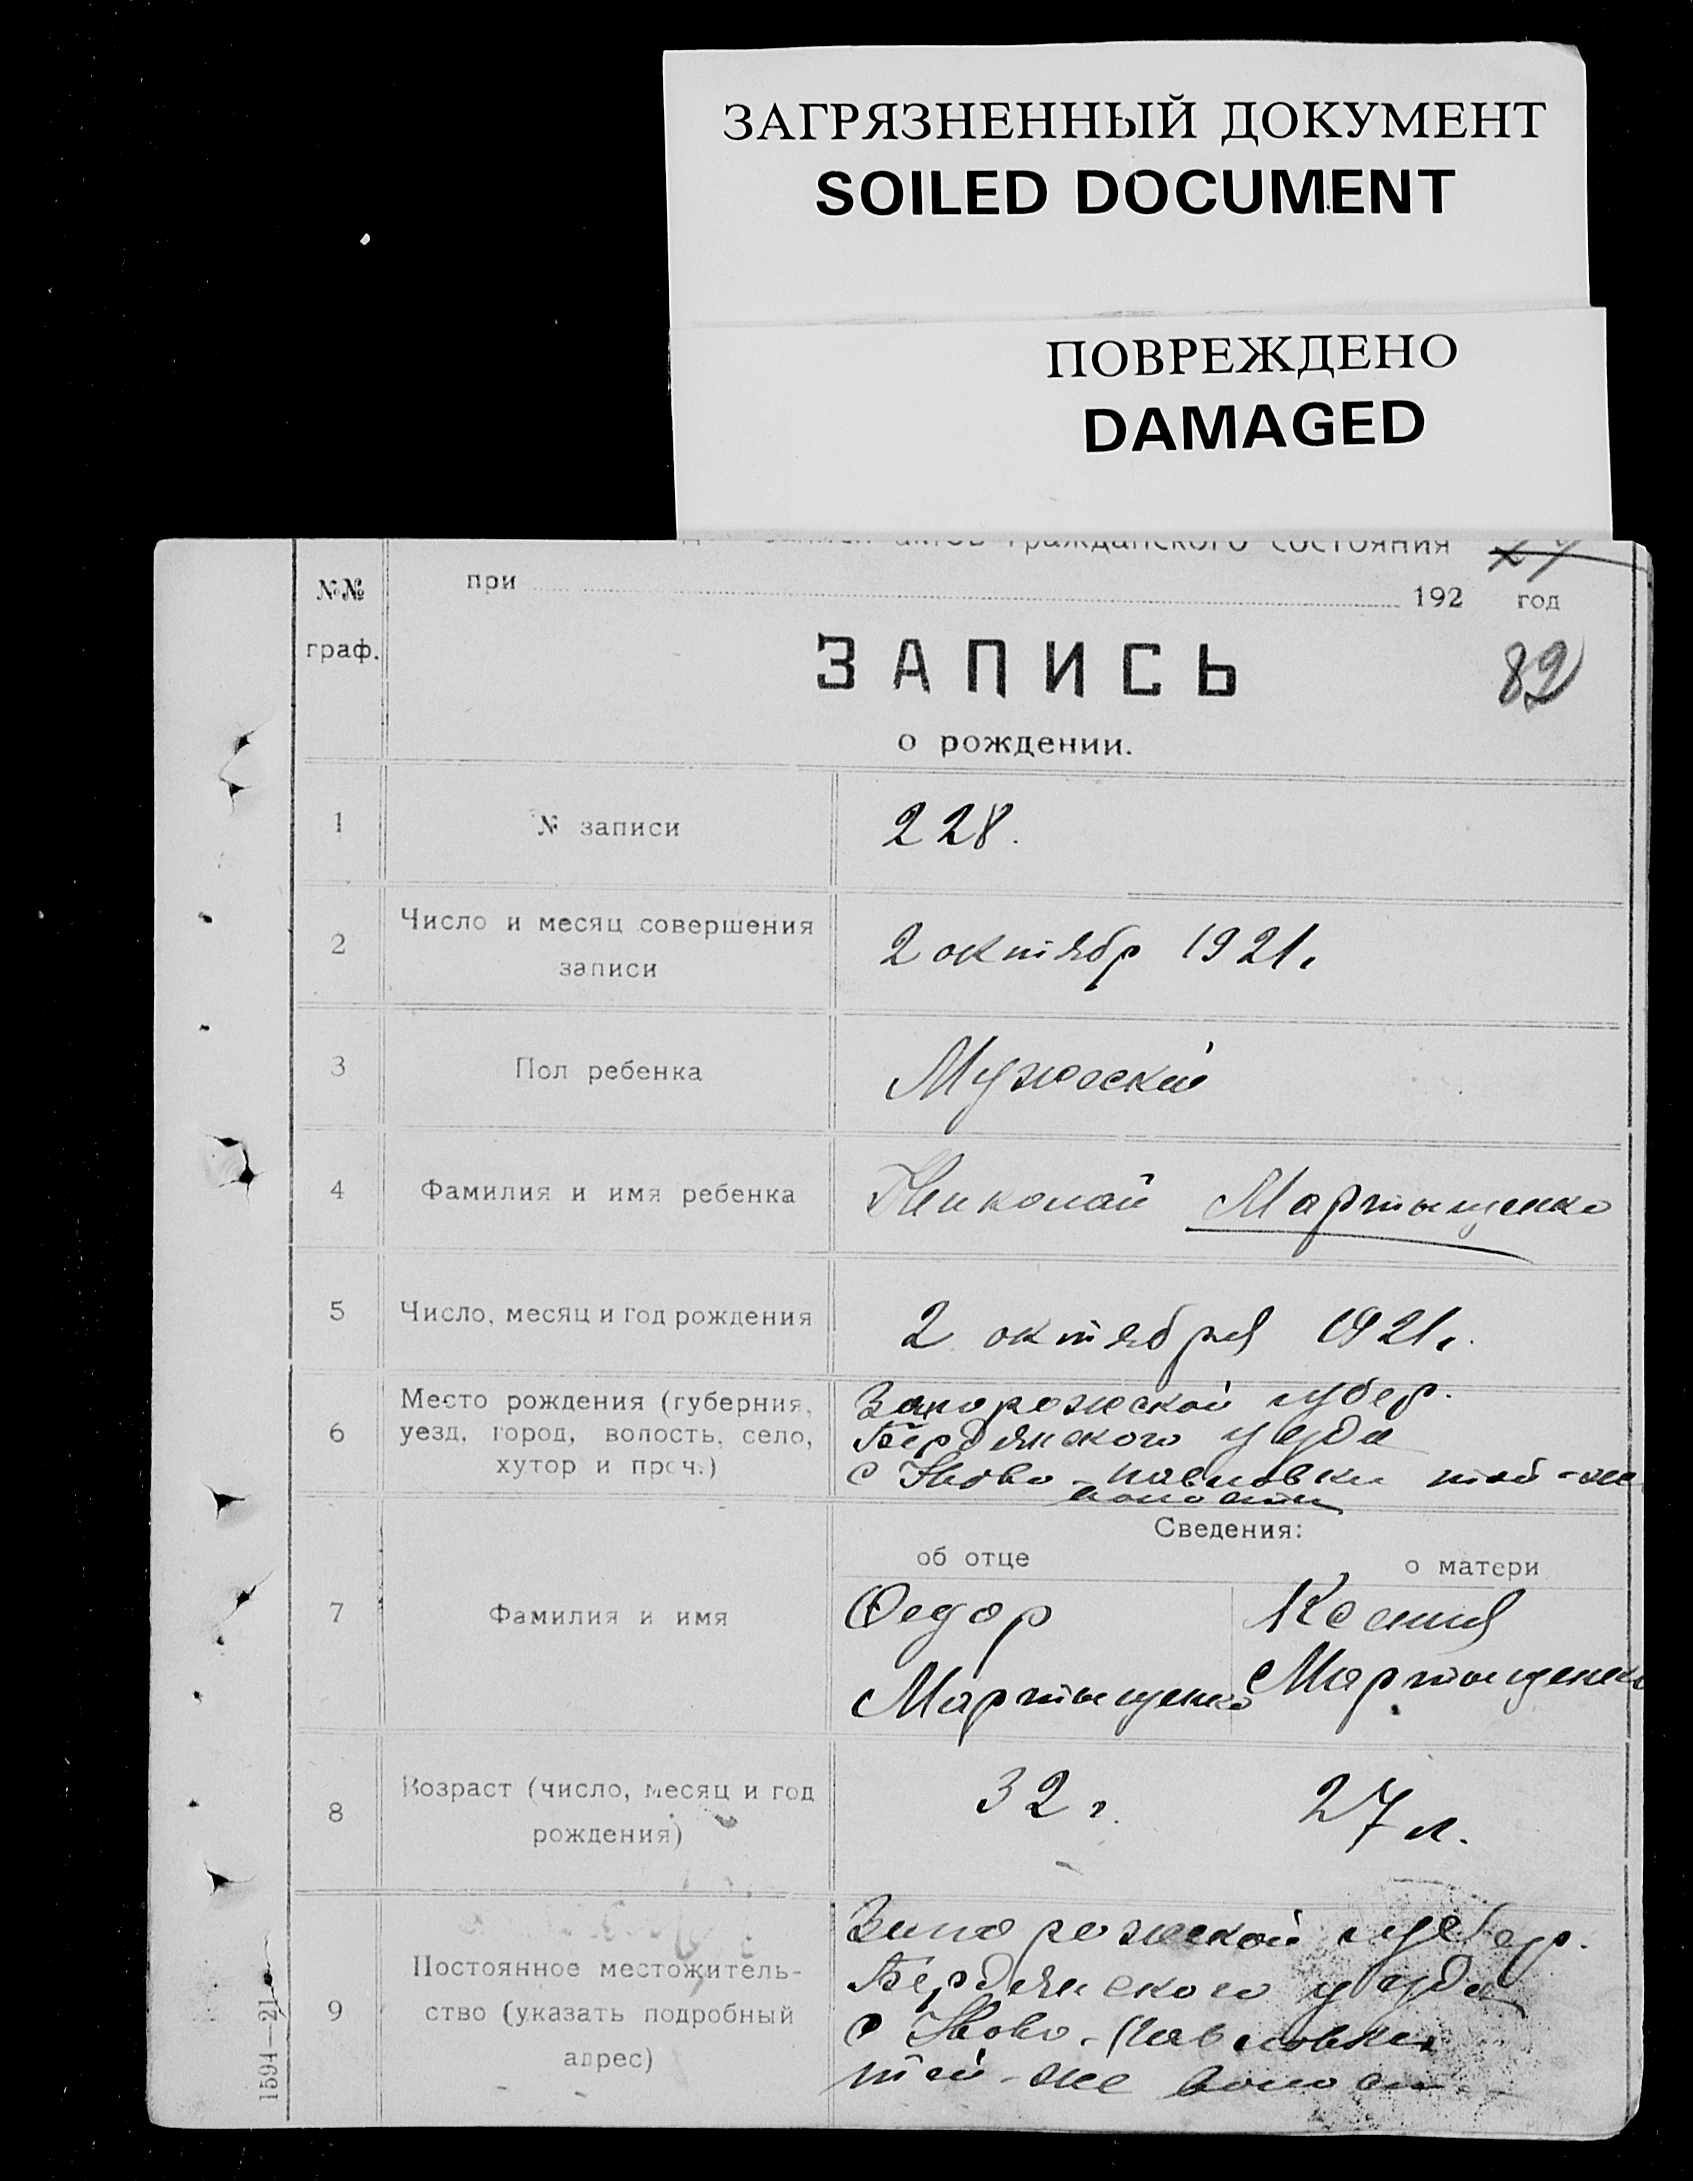 ЗАГРЯЗНЕННЫЙ ДОКУМЕНТ
SOILED DOCUMENT
ПОВРЕЖДЕНО
DAMAGED
актов гражданского состояния
№№ при 192 год
граф.
ЗАПИСЬ
82
о рождении.
1 № записи 228.
2 Число и месяц совершения
записи
2 октябр 1921.
3 Пол ребенка Мужескій
4 Фамилия и имя ребенка Николай Мартыщенко
5 Число, месяц и год рождения 2 октября 1921.
6 Место рождения (губерния,
уезд, город, волость, село,
хутор и проч.)
Запорожской губер.
Бердянского уезда
с Ново-павловки той-же
волости
Сведения:
об отце о матери
7 Фамилия и имя
Федор Ксения
Мартыщенко Мартыщенко
8 Возраст (число, месяц и год
рождения)
32 г. 27 л.
9 Постоянное местожитель-
ство (указать подробный
адрес)
Запорожской губер.
Бердянского уезда
с Ново-Павловки
той-же волост
1594—21